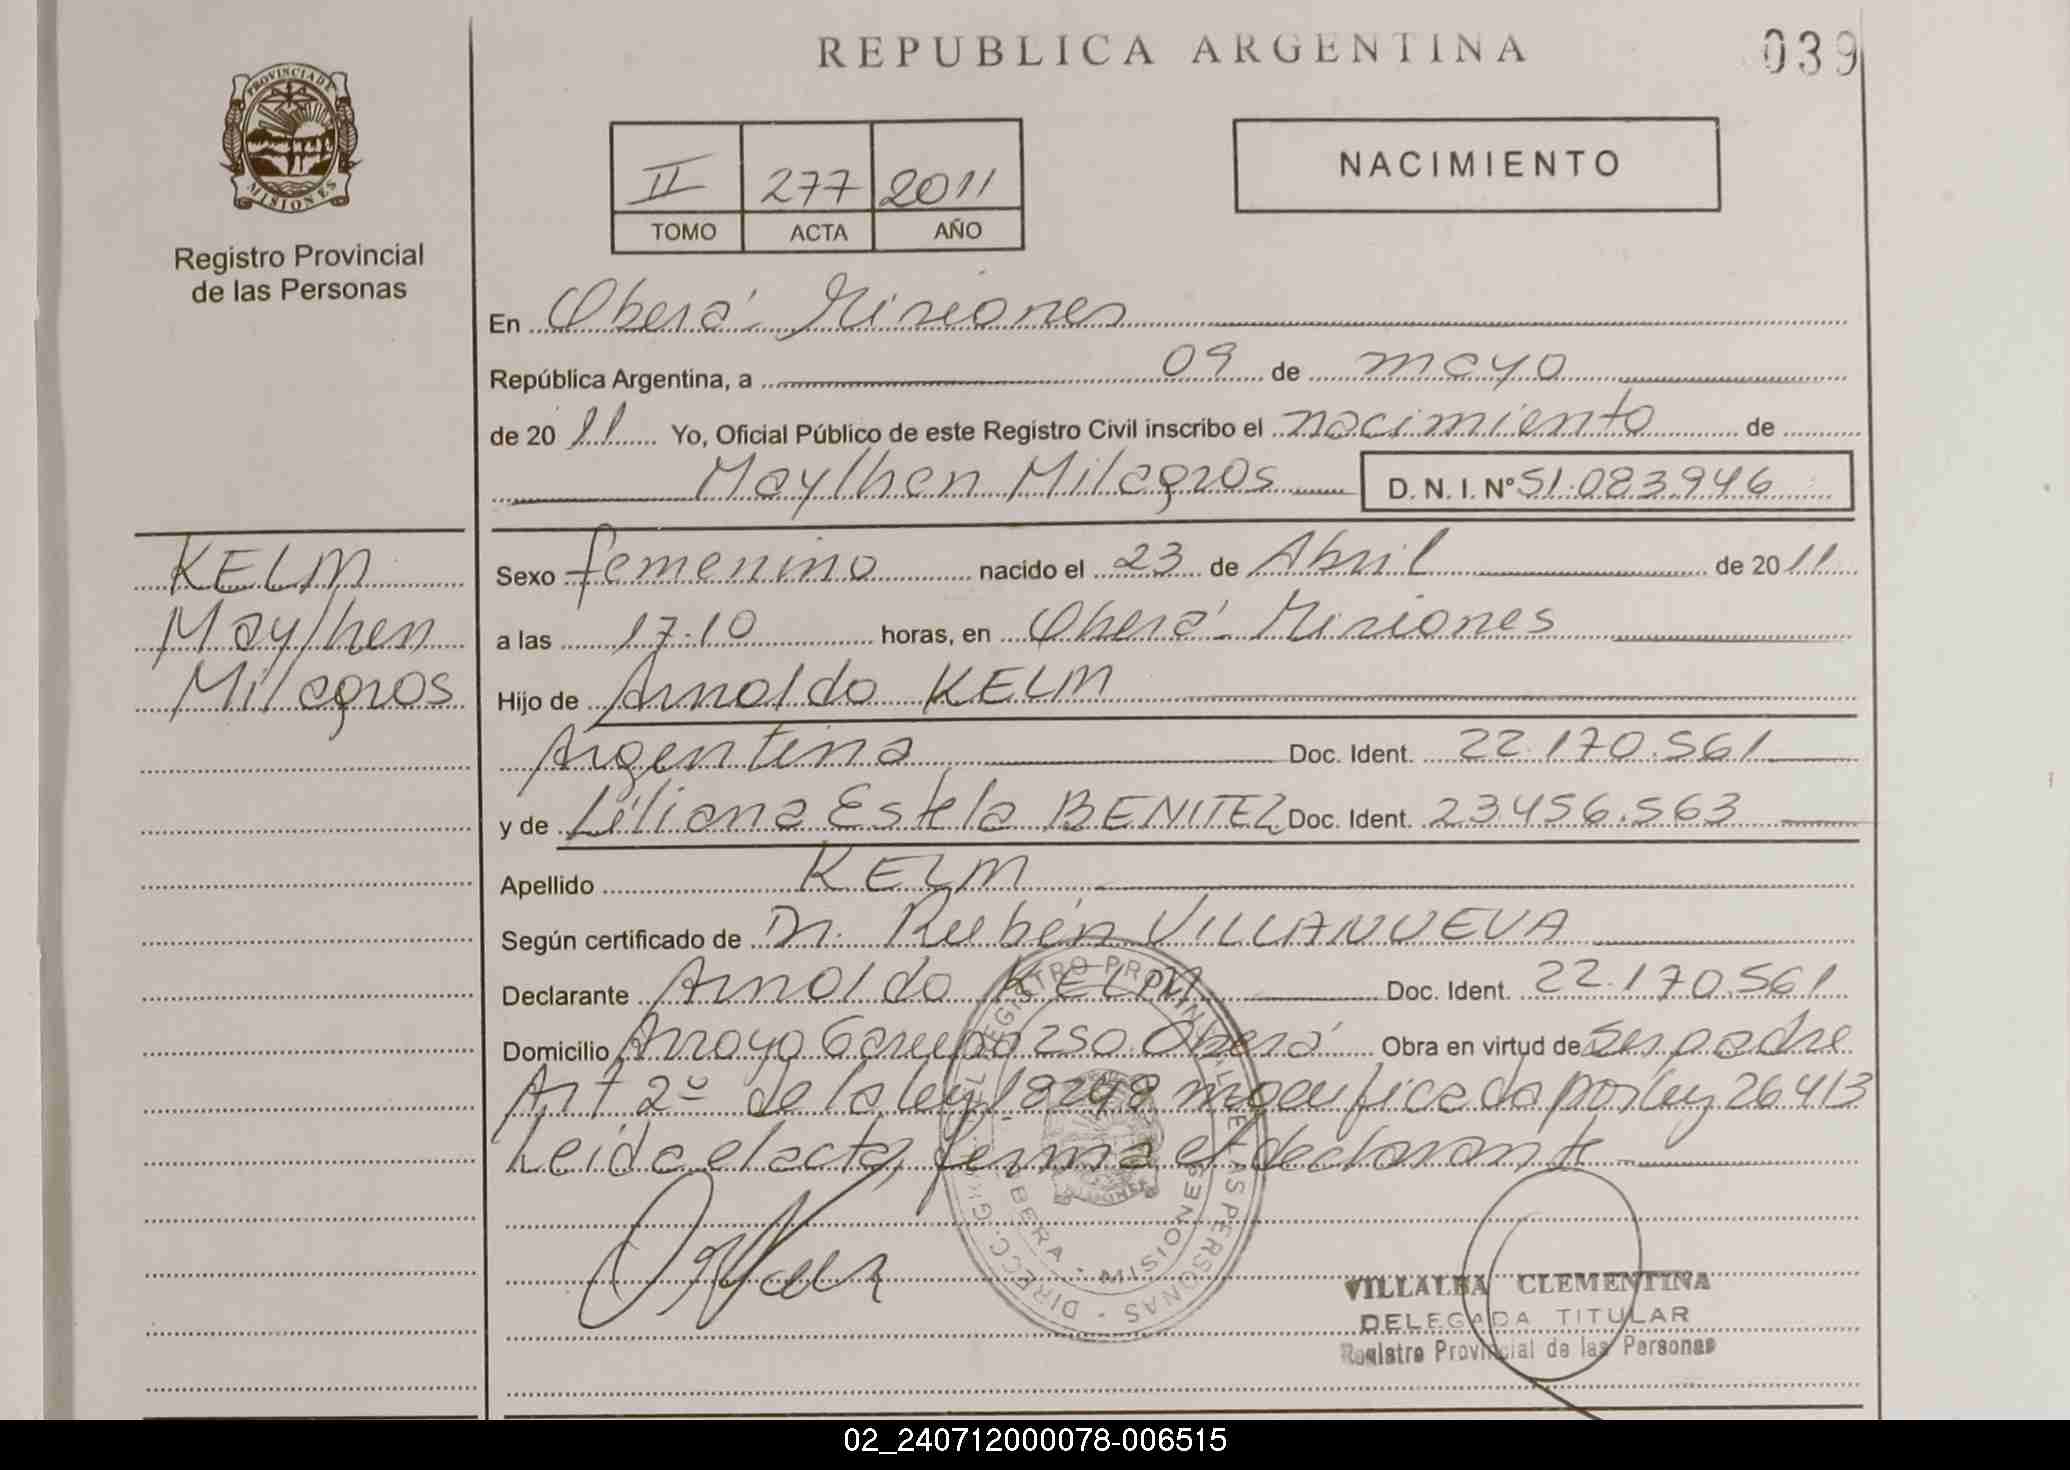 REPUBLICA ARGENTINA
039
PROVINCIA DE
MISIONES
Registro Provincial
de las Personas
II 277 2011
TOMO ACTA AÑO
NACIMIENTO
En Oberá Misiones
República Argentina, a 09 de mayo
de 2011 Yo, Oficial Público de este Registro Civil inscribo el nacimiento de
Maylhen Milagros D.N.I. Nº 51.083.946
KELM
Maylhen
Milagros
Sexo femenino nacido el 23 de Abril de 2011
a las 17.10 horas, en Oberá Misiones
Hijo de Arnoldo KELM
Argentina Doc. Ident. 22.170.561
y de Liliana Estela BENITEZ Doc. Ident. 23.456.563
Apellido KELM
Según certificado de Dr. Rubén VILLANUEVA
Declarante Arnoldo KELM Doc. Ident. 22.170.561
Domicilio Arroyo Garupá 250 Oberá Obra en virtud de ser padre
Art 2º de la ley 18248 modificada por ley 26413
Leida el acta, firma el declarante
REGISTRO PROVINCIAL DE LAS PERSONAS - DIRECC. GRAL.
OBERA - MISIONES
VILLALBA CLEMENTINA
DELEGADA TITULAR
Registro Provincial de las Personas
02_240712000078-006515